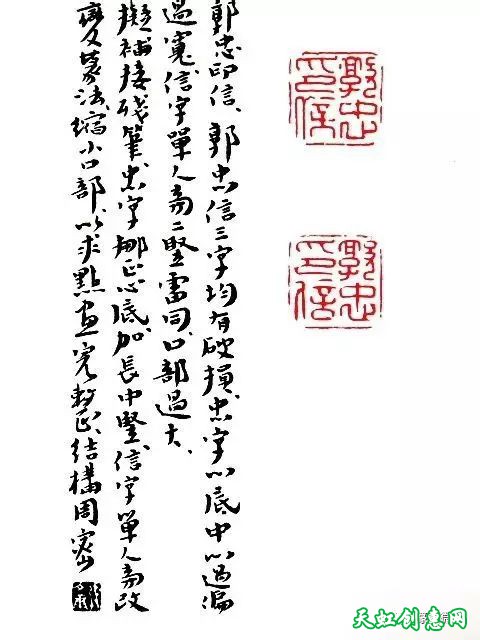 郭忠印信、郭忠信三字均有破損忠字心底中心過偏
過寬信字單人旁二豎雷同口部過大、
擬補接殘筆忠字挪正心底加長中豎信字單人旁改
變篆法縮小口部以求點畫完整、結構周密
郭忠印信
郭忠印信
天虹创意网